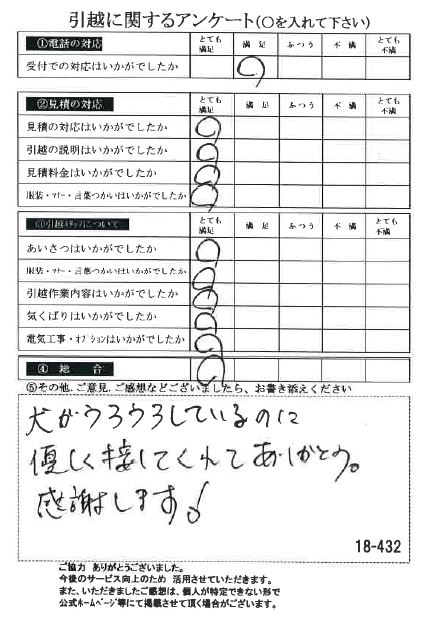 引越に関するアンケート(○を入れて下さい)
①電話の対応 とても満足 満足 ふつう 不満 とても不満
受付での対応はいかがでしたか
②見積の対応 とても満足 満足 ふつう 不満 とても不満
見積の対応はいかがでしたか
引越の説明はいかがでしたか
見積料金はいかがでしたか
服装・マナー・言葉つかいはいかがでしたか
③引越スタッフについて とても満足 満足 ふつう 不満 とても不満
あいさつはいかがでしたか
服装・マナー・言葉つかいはいかがでしたか
引越作業内容はいかがでしたか
気くばりはいかがでしたか
電気工事・オプションはいかがでしたか
④ 総 合
⑤その他、ご意見、ご感想などございましたら、お書き添えください
犬がうろうろしているのに
優しく接してくれてありがとう。
感謝します!
18-432
ご協力 ありがとうございました。
今後のサービス向上のため 活用させていただきます。
また、いただきましたご感想は、個人が特定できない形で
公式ホームページ等にて掲載させて頂く場合がございます。